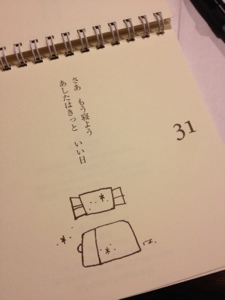 さあ　もう寝よう
あしたはきっと　いい日
31